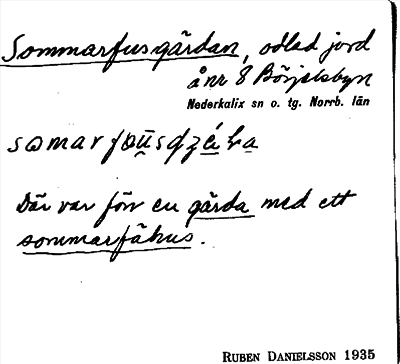 Sommarfusgärdan, odlad jord
å nr 8 Börjelsbyn
Nederkalix sn o. tg. Norrb. län
Där var förr en gärda med ett
sommarfähus.
RUBEN DANIELSSON 1935